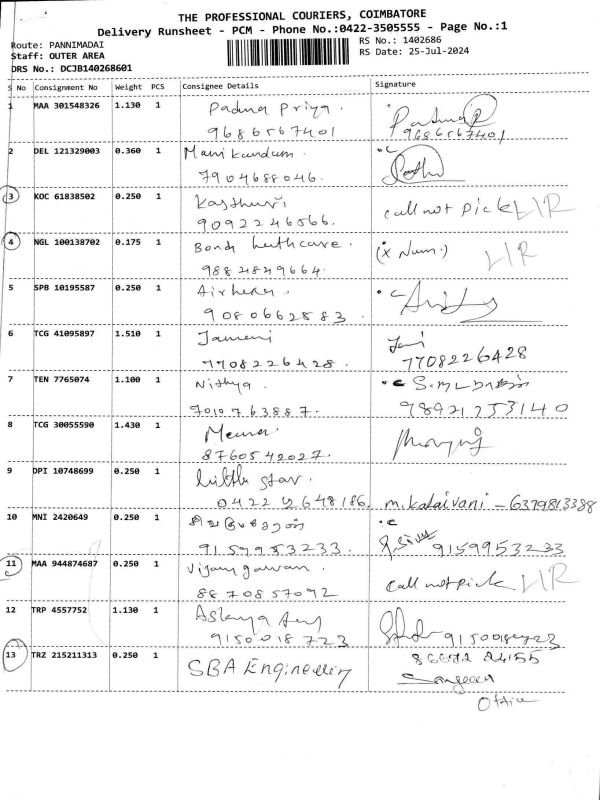 THE PROFESSIONAL COURIERS, COIMBATORE
Delivery Runsheet - PCM - Phone No.:0422-3505555 - Page No.:1
Route: PANNIMADAI
Staff: OUTER AREA
DRS No.: DCJB140268601
RS No.: 1402686
RS Date: 25-Jul-2024
S No Consignment No Weight PCS Consignee Details Signature
1 MAA 301548326 1.130 1 Padma Priya.
9686567401 9686567401
2 DEL 121329003 0.360 1 Manikandum.
7904688046.
3 KOC 61838502 0.250 1 Kasthuri call not pick L/R
9092246566.
4 NGL 100138702 0.175 1 (x Num.) L/R
9884849664.
5 SPB 10195587 0.250 1
9080662583.
6 TCG 41095897 1.510 1
7708226428. 7708226428
7 TEN 7765074 1.100 1 Nithya.
7010763887.
8 TCG 30055590 1.430 1 Meena
8760542027.
9 DPI 10748699 0.250 1 little star.
0422 2648186. m.kalaivani - 6379813388
10 MNI 2420649 0.250 1
9159953233. 9159953233
11 MAA 944874687 0.250 1 call not pick L/R
8870857092
12 TRP 4557752 1.130 1
9150018723
13 TRZ 215211313 0.250 1 SBA Engineering
Sangeea
Office